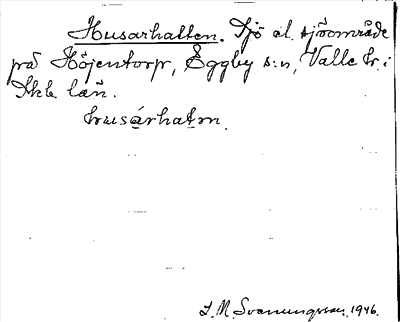 Husarhatten. Sjö el. sjöområde
på Höjentorp, Eggby s:n, Valle hr. i
Skb. län.
husárhatn.
S. M. Svenungsson. 1946.